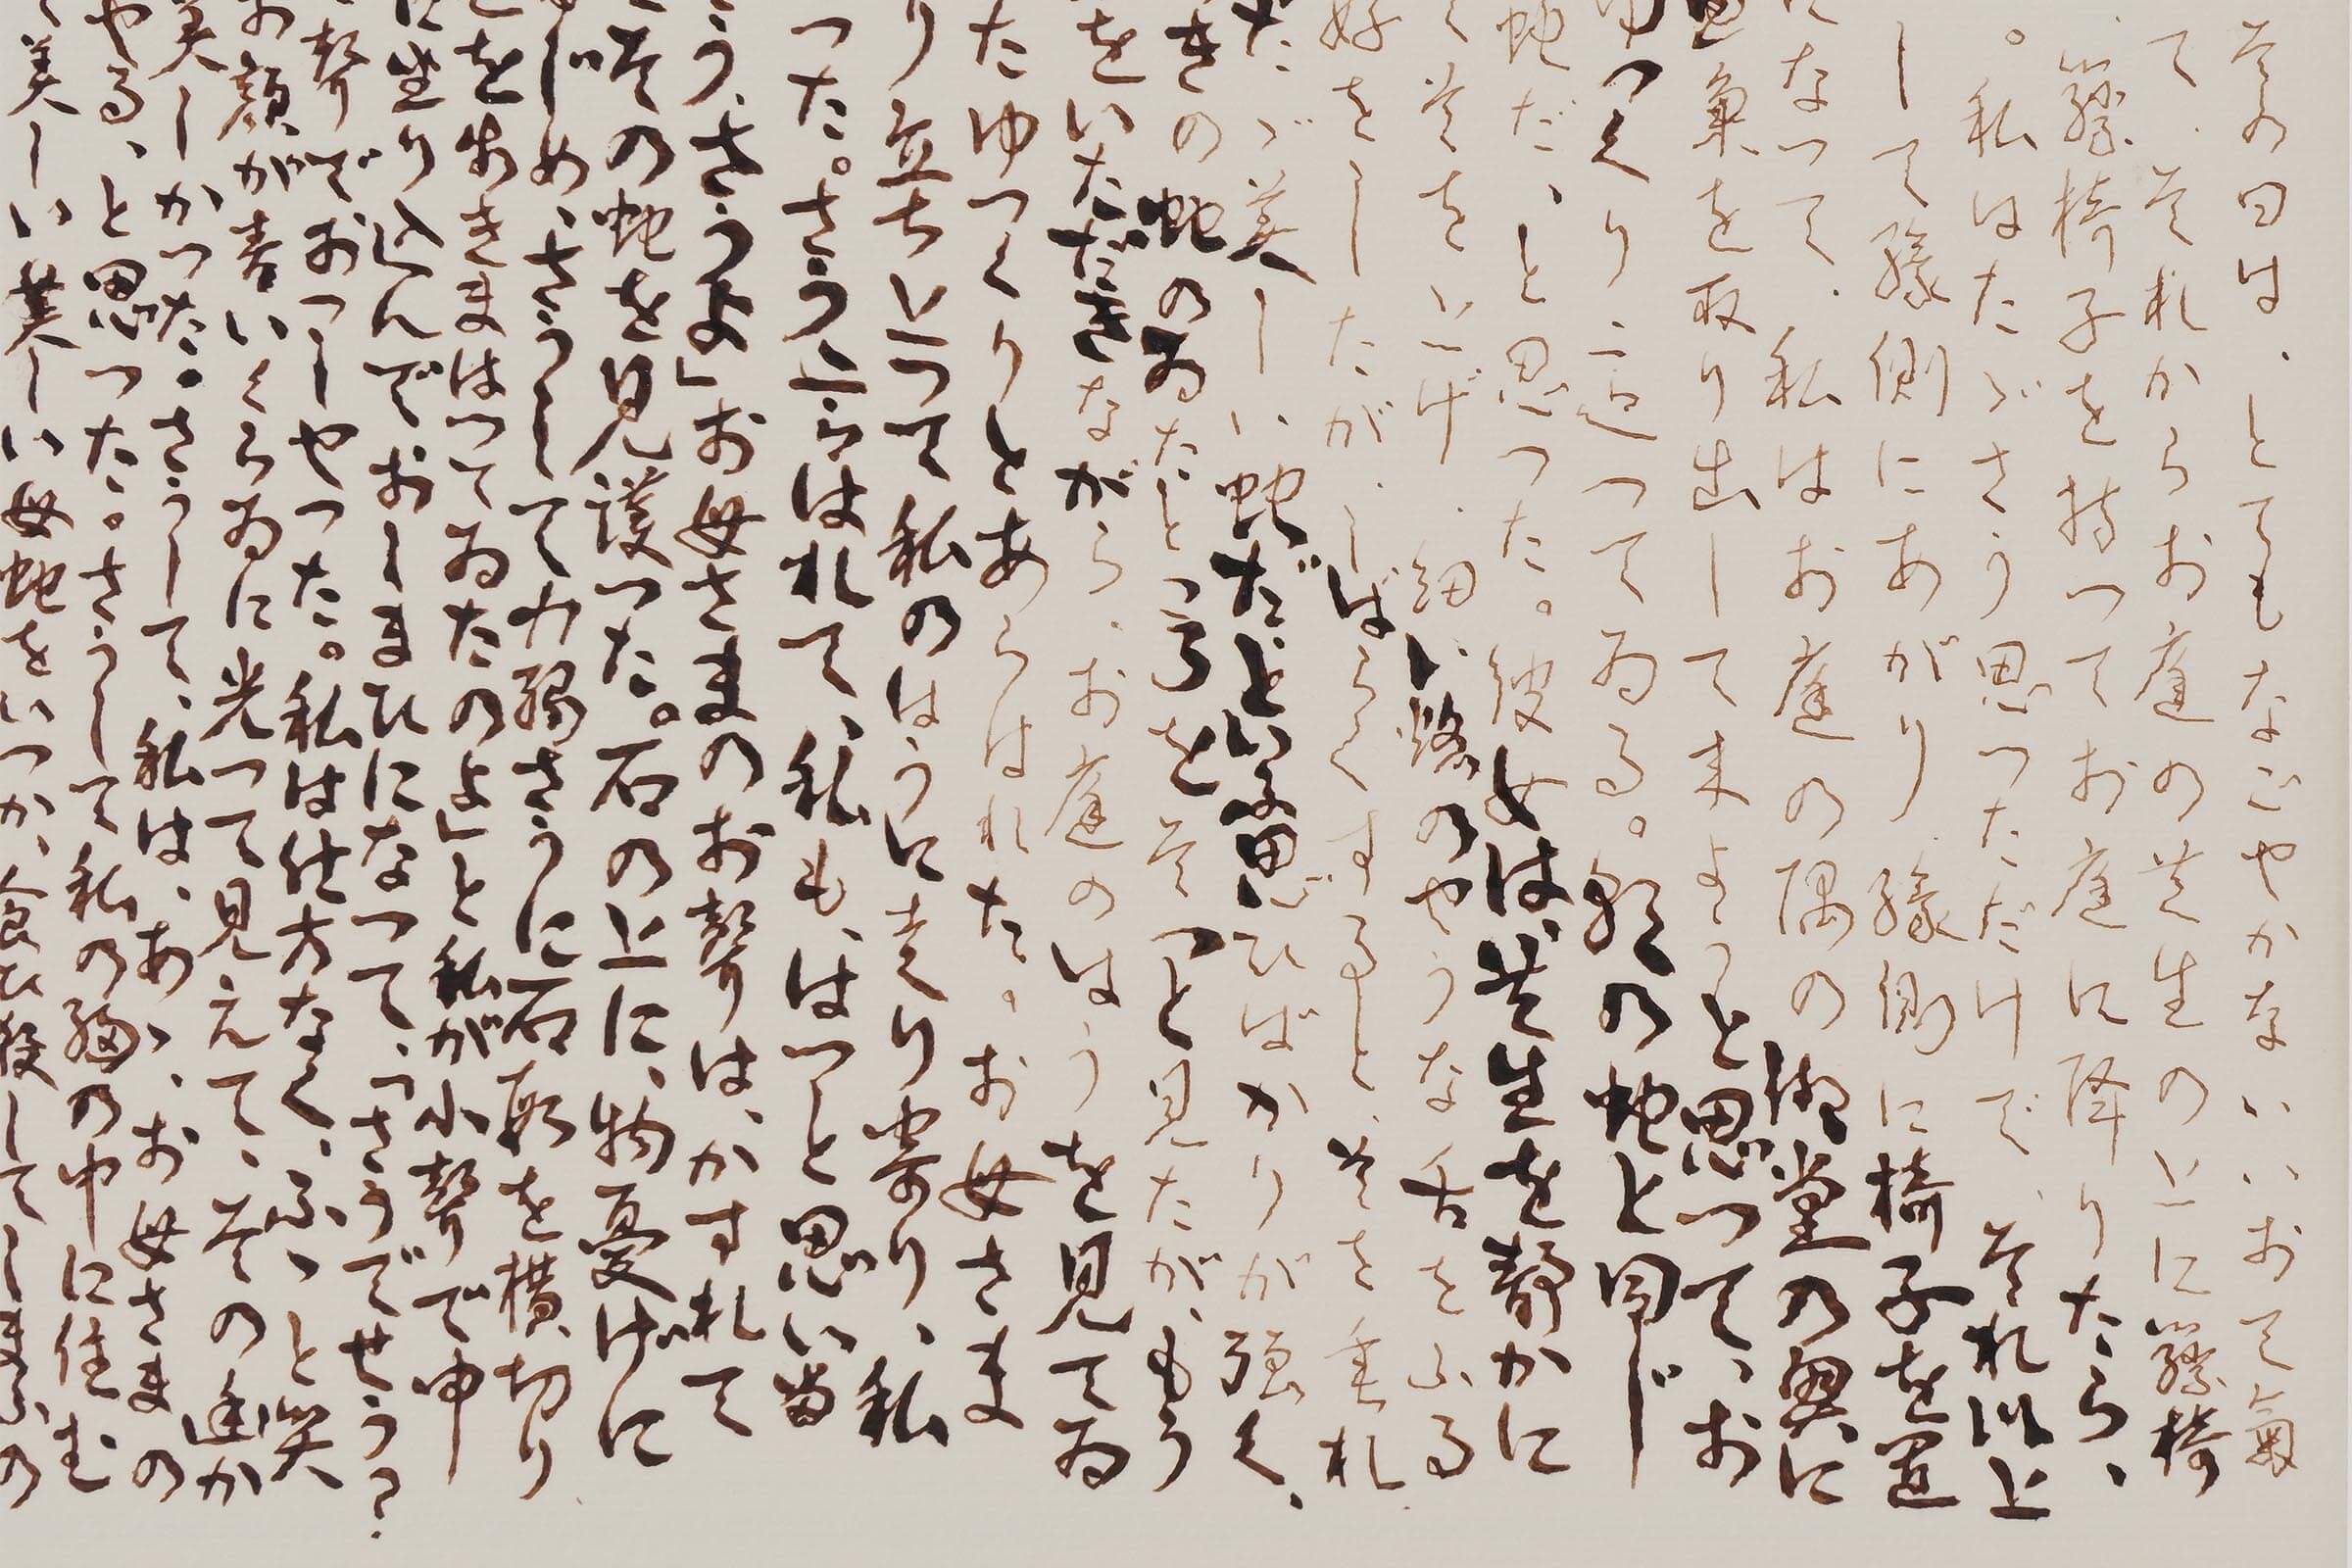 その日は、とてもなごやかないいお天氣
て、それからお庭の芝生の上に籐椅
、籐椅子を持つてお庭に降りたら、
。私はたださう思つただけで、それ以上
して縁側にあがり、縁側に椅子を置
になつて、私はお庭の隅の御堂の奥に
集を取り出して来ようと思つて、お
ゆつくり這つてゐる。朝の蛇と同じ
蛇だ、と思つた。彼女は、芝生を静かに
首を上げ、細い焔のやうな舌をふる
をしたが、しばらくすると、首を垂れ
ただ美しい蛇だ、といふ思ひばかりが強く、
きの蛇のゐたところをそつと見たが、もう
をいただきながら、お庭のはうを見てゐ
たゆつくりとあらはれた。お母さま
り立ち上つて私のはうに走り寄り、私
つた。さう言はれて、私も、はつと思い當
う、さうよ」お母さまのお聲は、かすれて
その蛇を見護つた。石の上に、物憂げに
じめ、さうして力弱さうに石段を横切り
とを歩きまはつてゐたのよ」と私が小聲で申
に坐り込んでおしまひになつて、「さうでせう?
聲でおつしやつた。私は仕方なく、ふゝと笑
お顔が青いくらゐに光つて見えて、その幽か
美しかつた。さうして、私は、あゝ、お母さまの
やる、と思つた。さうして私の胸の中に住む
美しい美しい母蛇をいつか、食ひ殺してしまふの